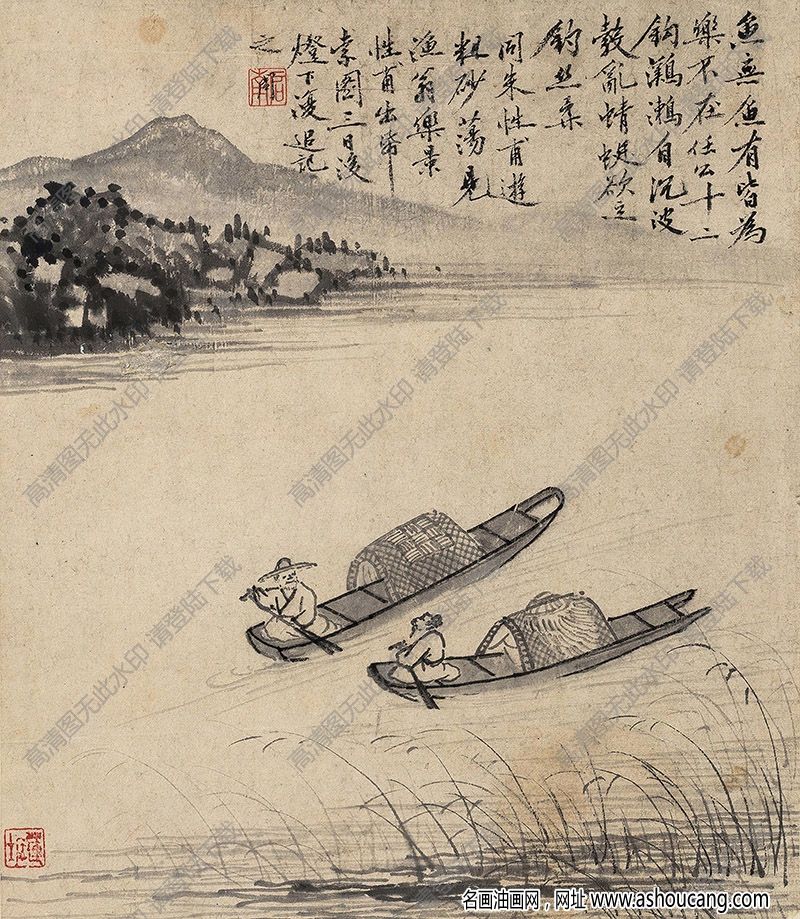 魚無魚有皆為
樂不在任公十二
鈎鸂鶒自沉波
鼓亂蜻蜓欲立
釣絲柔
同朱性甫遊
粗砂蕩覓
漁翁樂景
性甫出帋
索圖三日後
燈下漫追記
之
高清图无此水印 请登陆下载
名画油画网，网址 www.ashoucang.com